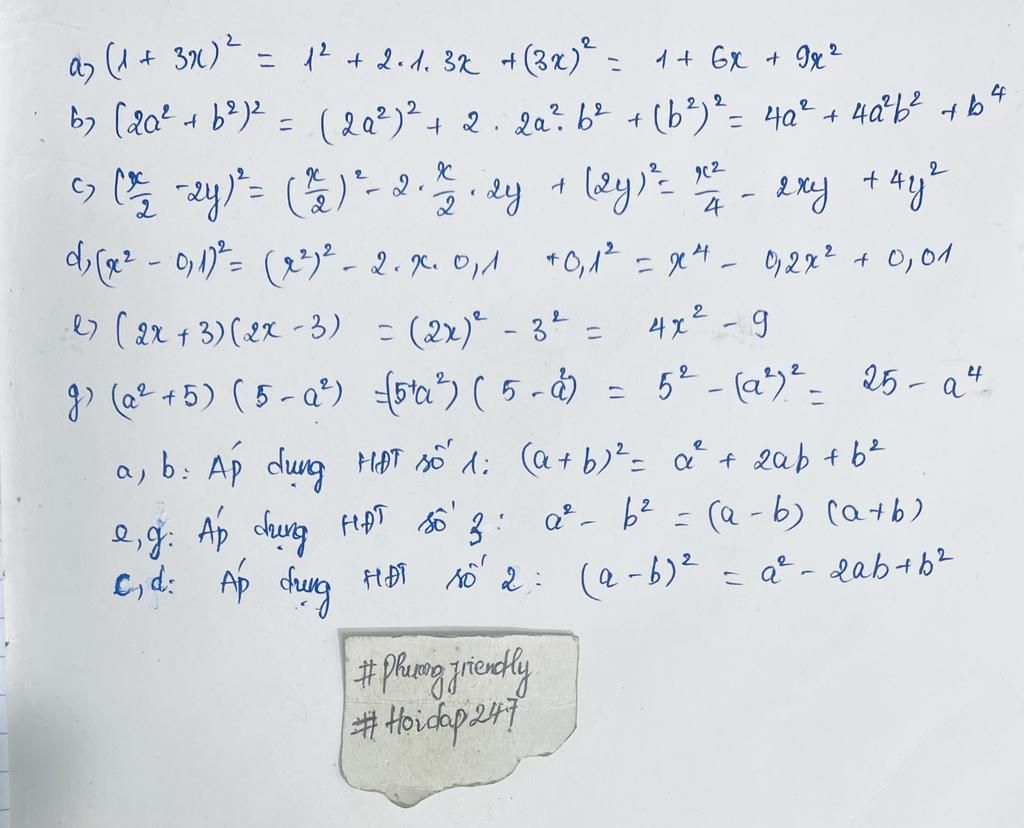 a) (1 + 3x)² = 1² + 2.1.3x + (3x)² = 1 + 6x + 9x²
b) (2a² + b²)² = (2a²)² + 2 . 2a². b² + (b²)² = 4a² + 4a²b² + b⁴
c) (x/2 - 2y)² = (x/2)² - 2 . x/2 . 2y + (2y)² = x²/4 - 2xy + 4y²
d) (x² - 0,1)² = (x²)² - 2 . x . 0,1 + 0,1² = x⁴ - 0,2x² + 0,01
e) (2x + 3)(2x - 3) = (2x)² - 3² = 4x² - 9
g) (a² + 5) (5 - a²) = (5 + a²) (5 - a²) = 5² - (a²)² = 25 - a⁴
a, b: Áp dụng HĐT số 1: (a + b)² = a² + 2ab + b²
e, g: Áp dụng HĐT số 3: a² - b² = (a - b) (a + b)
c, d: Áp dụng HĐT số 2: (a - b)² = a² - 2ab + b²
#Phuongfriendly
#Hoidap247